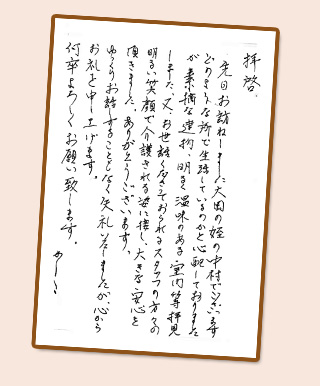 拝啓、
先日お訪ねしました大田の姪の中村でございます
どのような所で生活しているのかと心配しておりました
が素敵な建物、明るく温味のある室内等拝見
しました。又、お世話くださっておられるスタッフの方々の
明るい笑顔で介護される姿に接し、大きな安心を
頂きました。ありがとうございます。
ゆっくりお話しすることもなく失礼致しましたが、心から
お礼を申し上げます。
何卒よろしくお願い致します。
かしこ